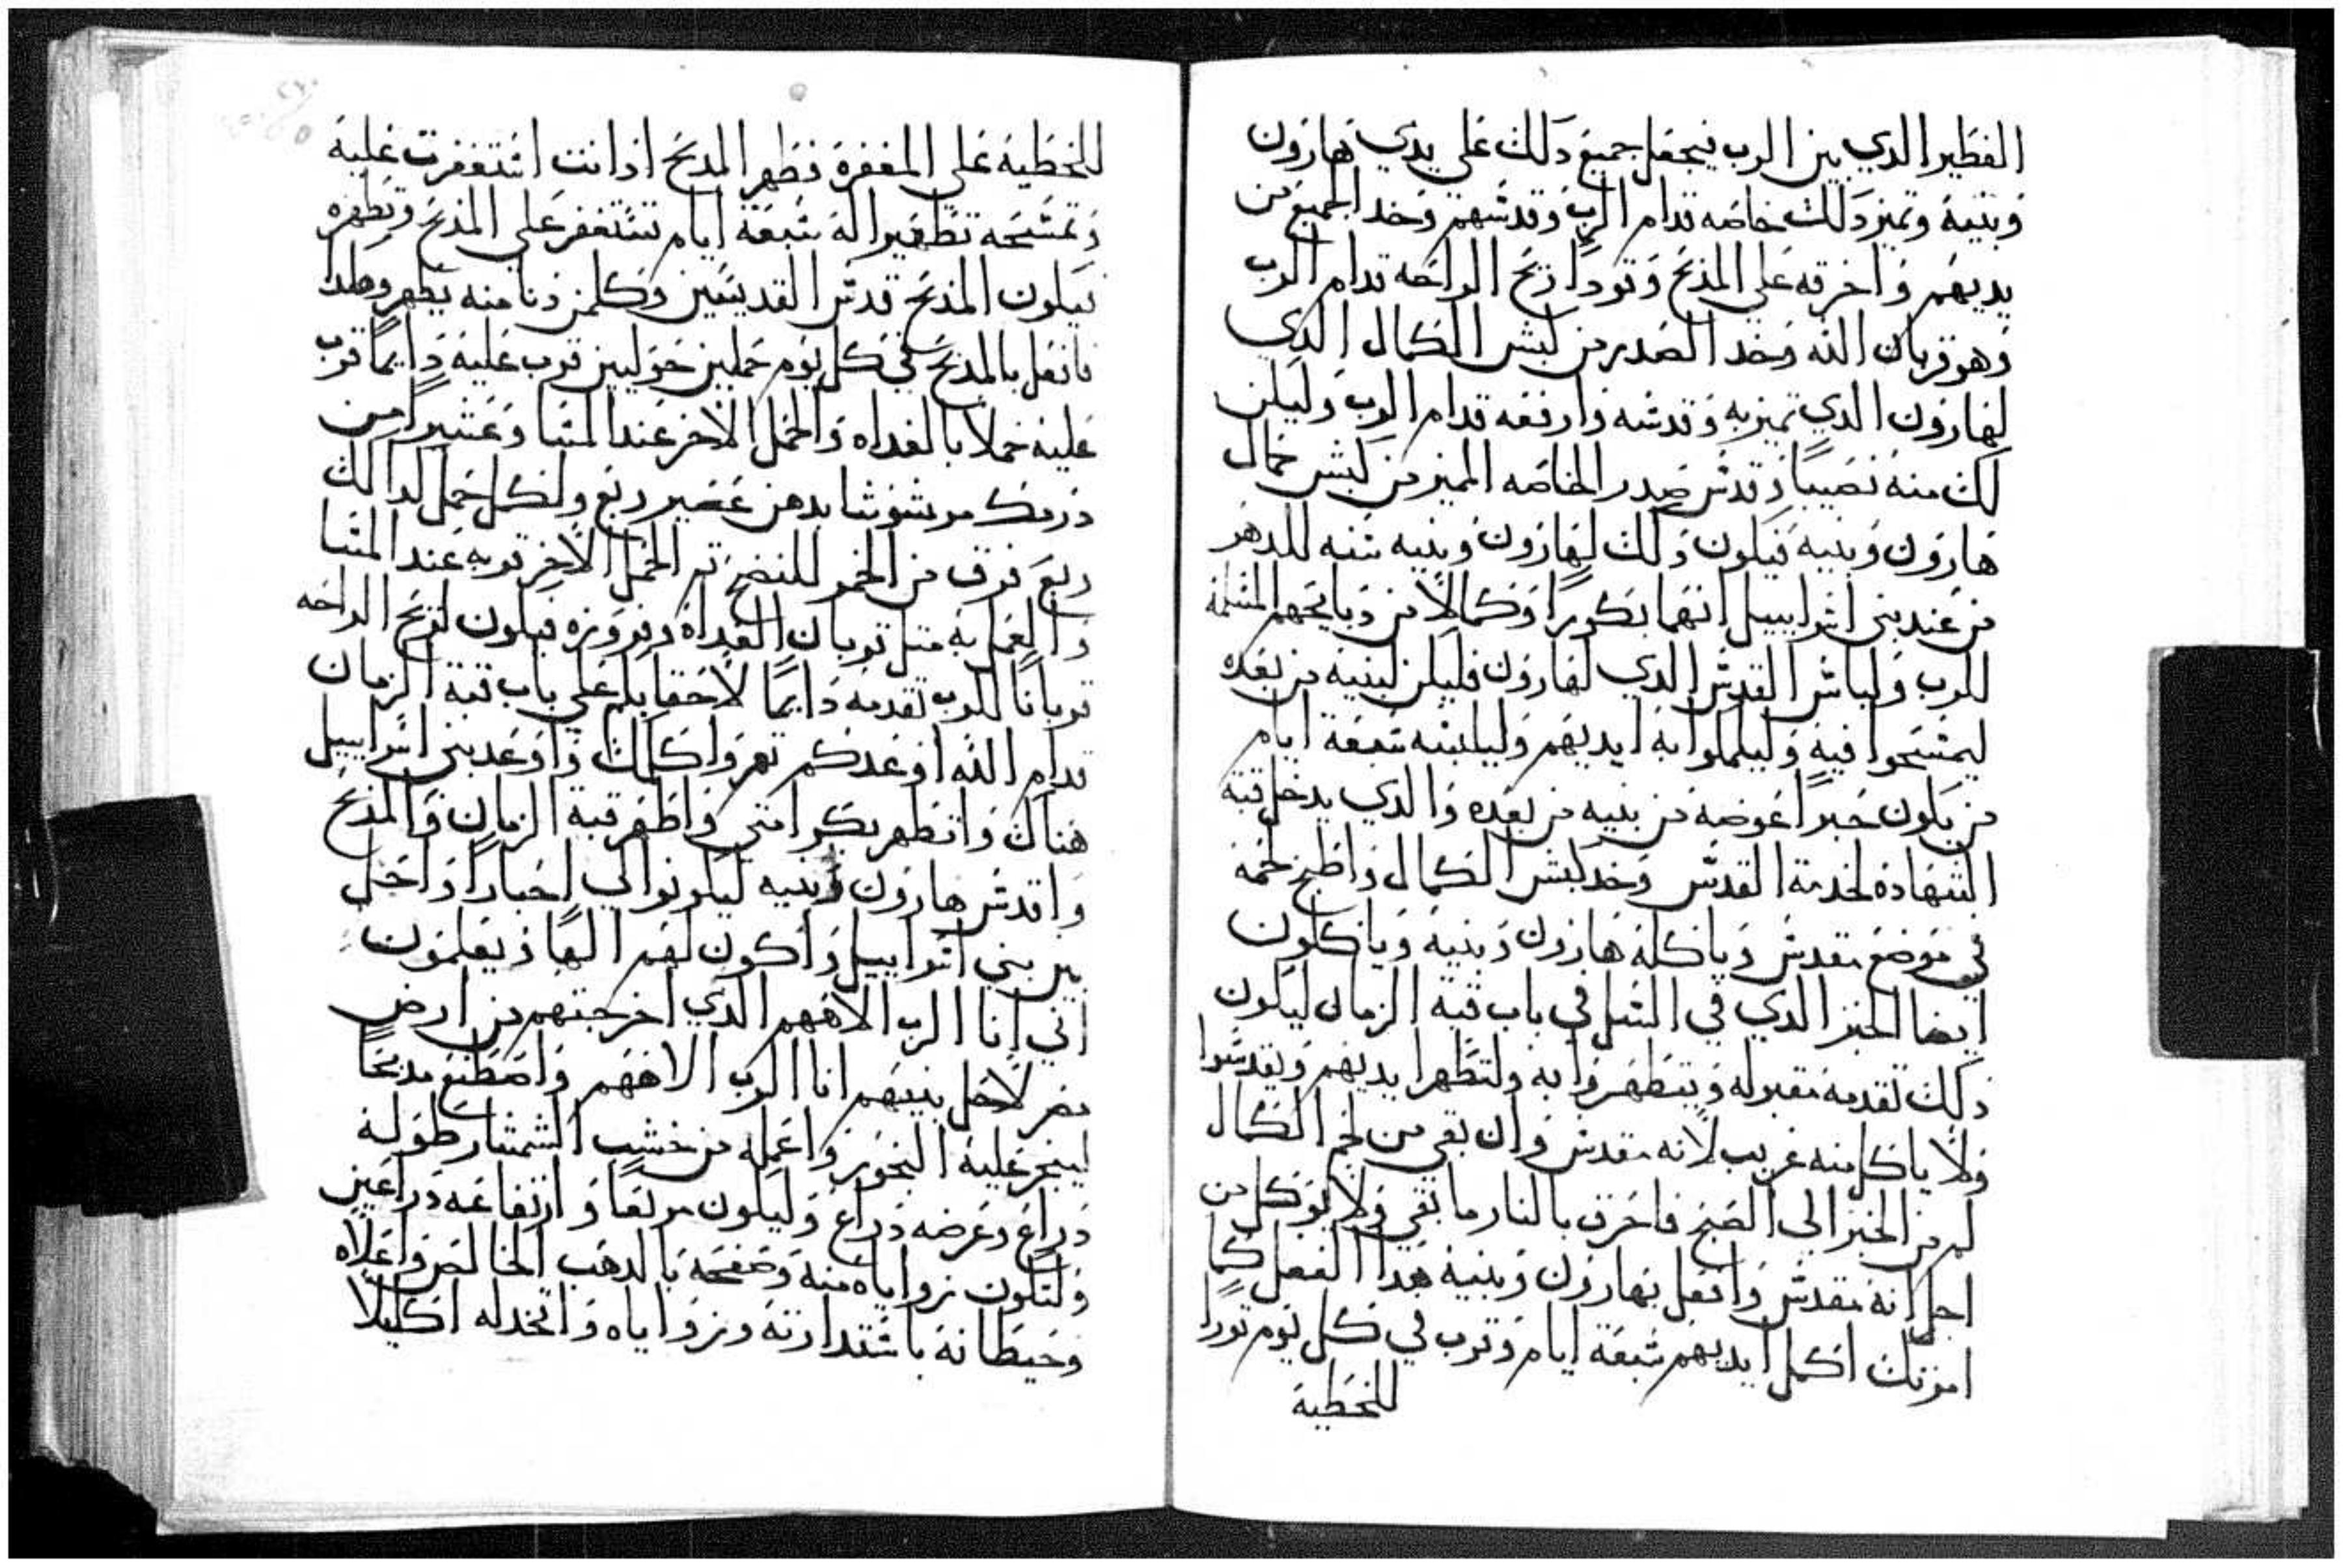 الفطير الدي بين الرب فيجعل جميع دلك على يدي هارون
وبنيه وتميز دلك خاصه قدام الرب وقدسهم وخد الجميع من
يديهم واحرقه على المذبح وقودا لريح الراحه قدام الرب
وهو قربان الله وخد الصدر من كبش الكمال الدي
لهارون الدي تميز به وقدسه وارفعه قدام الرب وليكن
لك منه نصيبا وقدس صدر الخاصه المميز من كبش كمال
هارون وبنيه فيكون دلك لهارون وبنيه سنه للدهر
من عند بني اسراييل انهما بكورا وكمالا من دبايحهم المسلمة
للرب ولباس القدس الدي لهارون فليكن لبنيه من بعده
ليمسحوا فيه وليكملوا به ايديهم وليلبسه سبعة ايام
من يكون حبرا عوضه من بنيه من بعده والدي يدخل قبة
الشهادة لخدمة القدس وخد كبش الكمال واطبخ لحمه
في موضع مقدس وياكله هارون وبنيه وياكلون
ايضا الخبز الدي في السل في باب قبة الزمان ليكون
دلك تقدمة مقبوله ويتطهروا به ولتطهر ايديهم ويقدسوا
ولا ياكل منه غريب لانه مقدس وان بقي من لحم الكمال
او من الخبز الى الصبح فاحرق بالنار ما بقي ولا يوكل من
اجل انه مقدس وافعل بهارون وبنيه هدا الفعل كما
امرتك اكمل ايديهم سبعة ايام وقرب في كل يوم ثورا
للخطية
للخطية على المغفرة فطهر المدبح ادا انت استغفرت عليه
وتمسحه تطهيرا له سبعة ايام تستغفر على المذبح وتطهره
فيكون المذبح قدس القديسين وكلمن دنا منه يطهر وهكدا
فافعل بالمدبح في كل يوم حملين حوليين قرب عليه دايما قرب
عليه حملا بالغداه والحمل الاخر عند المسا وعشيرا من
درمك مرشوشا بدهن عصير ربع ولكل حمل لدالك
ربع فرق من الخمر للنضح ثم الحمل الاخر قربه عند المسا
والعمل به مثل قربان الغداه ومروزه فيكون لريح الراحه
قربانا للرب تقدمه دايما لاحقابكم على باب قبة الزمان
قدام الله اوعدكم ثم واكلمك واوعد بني اسراييل
هناك واتطهر بكرامتي واطهر قبة الزمان والمذبح
واقدس هارون وبنيه ليكونوا لي احبارا واحل
بين بني اسراييل واكون لهم الها ويعلمون
اني انا الرب الاههم الدي اخرجتهم من ارض
مصر لاحل بينهم انا الرب الاههم واصطنع مدبحا
ليبخر عليه البخور واعمله من خشب الشمشار طوله
دراع وعرضه دراع وليكون مربعا وارتفاعه دراعين
ولتكون زواياه منه وصفحه بالدهب الخالص واعلاه
وحيطانه باستدارته وزواياه واتخد له اكليلا